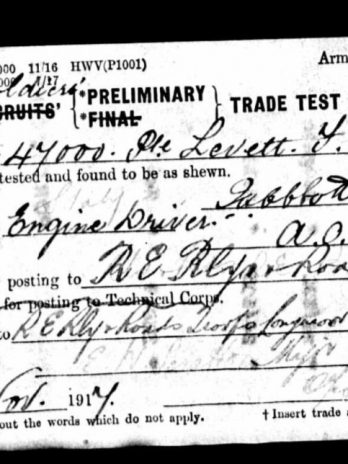 000 11/16 HWV(P1001) Arm
000 1/17
Soldiers'
CRUITS' { *PRELIMINARY *FINAL } TRADE TEST
47000. Pte Levett. F.
tested and found to be as shewn.
Engine Driver.
posting to R E Rlys & Roa
for posting to Technical Corps.
to R E Rlys & Roads Troops
Nov. 1917.
out the words which do not apply. † Insert trade a